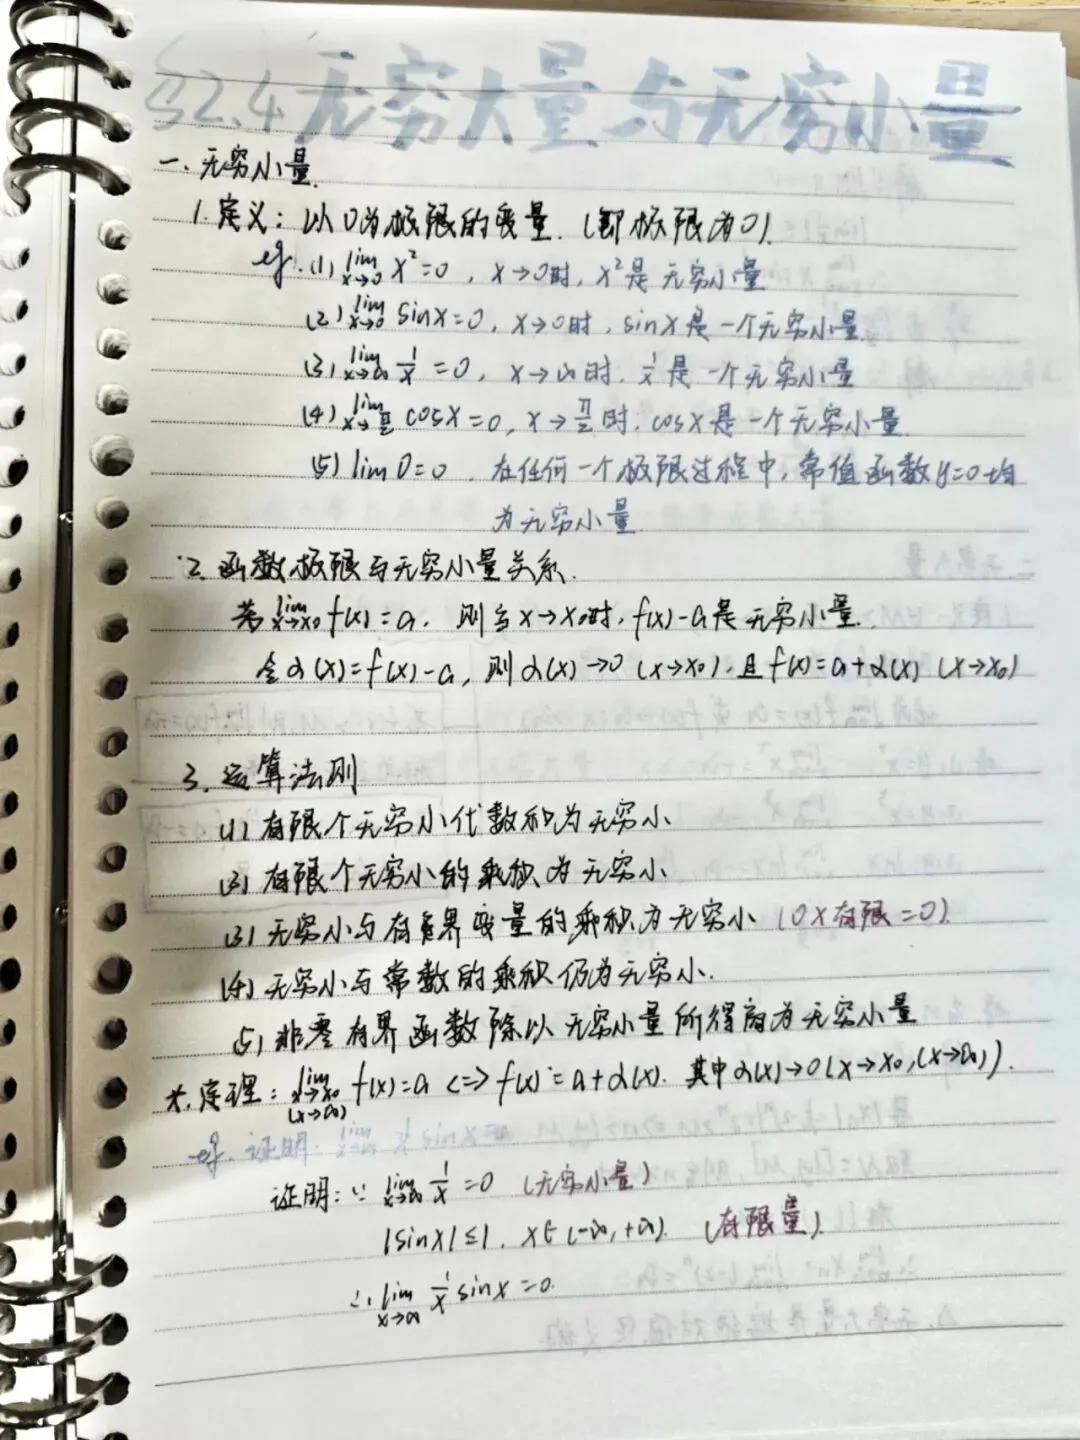 §2.4 无穷大量与无穷小量
一. 无穷小量.
1. 定义: 以0为极限的变量. (即极限为0).
eg. (1) lim x→0 x²=0, x→0时, x²是无穷小量
(2) lim x→0 sinx=0, x→0时, sinx是一个无穷小量.
(3) lim x→∞ 1/x =0, x→∞时, 1/x是一个无穷小量
(4) lim x→π/2 cosx=0, x→π/2时, cosx是一个无穷小量.
(5) lim 0=0, 在任何一个极限过程中, 常值函数y=0均
为无穷小量.
2. 函数极限与无穷小量关系.
若 lim x→x₀ f(x)=a, 则当x→x₀时, f(x)-a是无穷小量.
令α(x)=f(x)-a, 则α(x)→0 (x→x₀), 且f(x)=a+α(x) (x→x₀)
3. 运算法则
(1) 有限个无穷小代数和为无穷小
(2) 有限个无穷小的乘积为无穷小
(3) 无穷小与有界变量的乘积为无穷小 (0×有限=0).
(4) 无穷小与常数的乘积仍为无穷小.
(5) 非零有界函数除以无穷小量所得商为无穷小量
定理: lim x→x₀ (x→∞) f(x)=a <=> f(x)=a+α(x). 其中α(x)→0 (x→x₀, (x→∞)).
eg. 证明: lim x→∞ 1/x sinx
证明: ∵ lim x→∞ 1/x =0 (无穷小量)
|sinx|≤1, x∈(-∞,+∞). (有限量).
∴ lim x→∞ 1/x sinx=0.